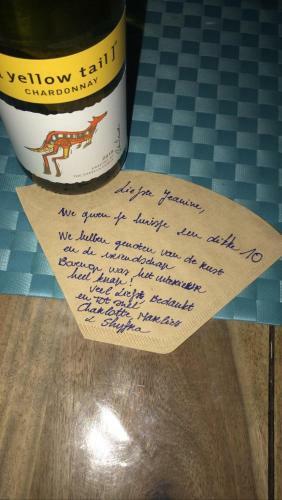 [yellow tail]
CHARDONNAY
Liefste Jeanine,
We geven je huisje een dikke 10
We hebben genoten van de rust
en de vriendschap
Bovenop was het interieur
heel knap!
Veel liefs Bedankt
en tot snel
Charlotte, Marlies
&